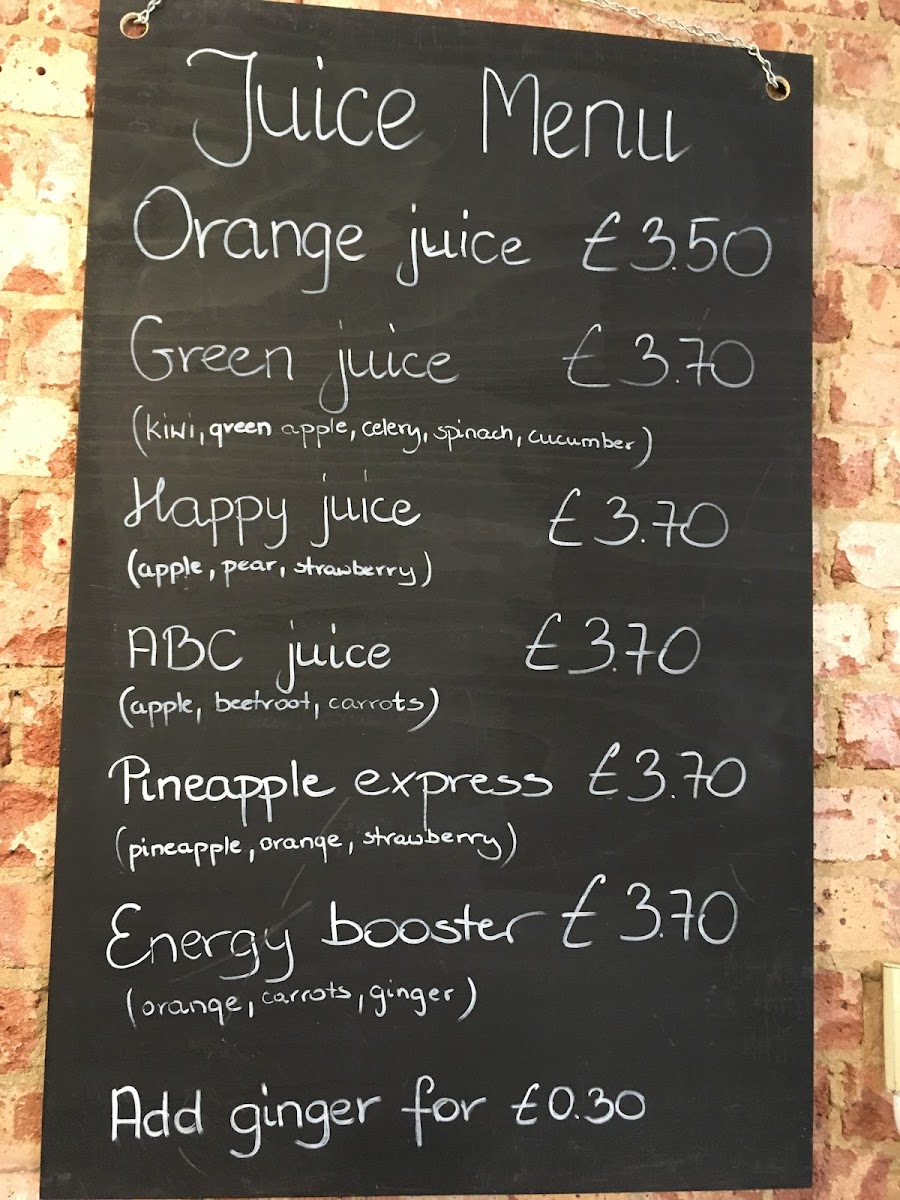 Juice Menu
Orange juice £3.50
Green juice £3.70
(kiwi, green apple, celery, spinach, cucumber)
Happy juice £3.70
(apple, pear, strawberry)
ABC juice £3.70
(apple, beetroot, carrots)
Pineapple express £3.70
(pineapple, orange, strawberry)
Energy booster £3.70
(orange, carrots, ginger)
Add ginger for £0.30